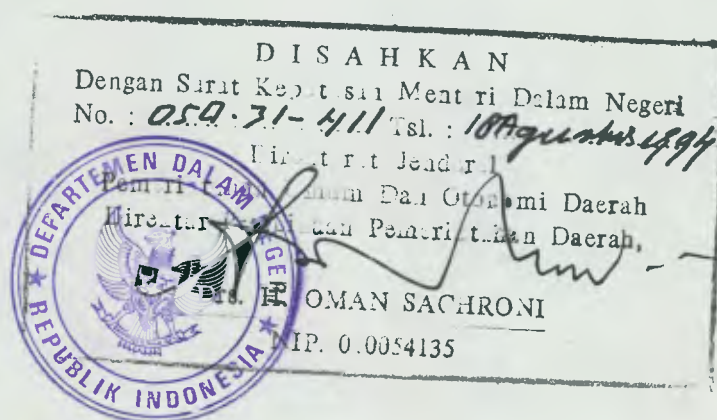 DISAHKAN
Dengan Surat Keputusan Menteri Dalam Negeri
No. : Tgl. : 18 Agustus 1994
Direktorat Jenderal
Umum Dan Otonomi Daerah
Direktur Pemerintahan Daerah,
OMAN SACHRONI
NIP. 0.0054135
DEPARTEMEN DALAM NEGERI
REPUBLIK INDONESIA